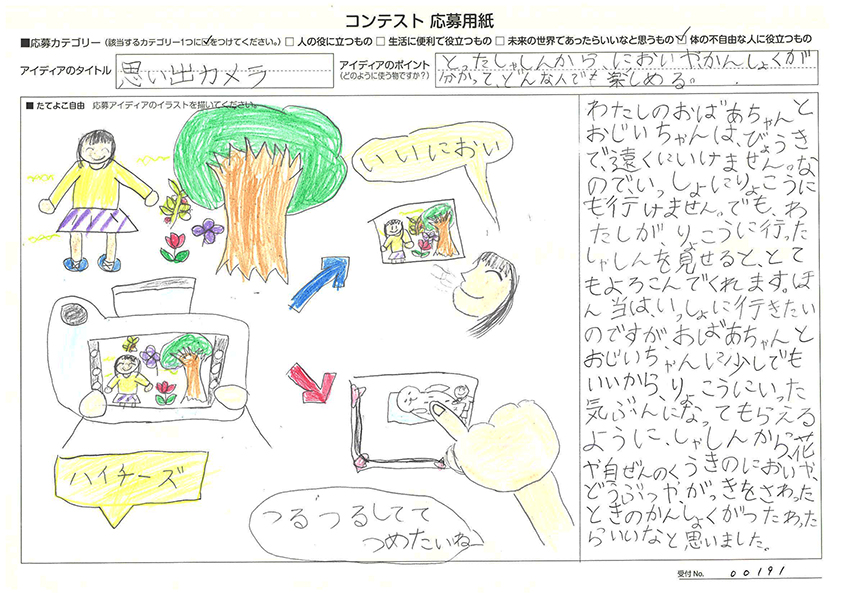 コンテスト 応募用紙
■応募カテゴリー (該当するカテゴリー1つに☑をつけてください。) □ 人の役に立つもの □ 生活に便利で役立つもの □ 未来の世界であったらいいなと思うもの ☑ 体の不自由な人に役立つもの
アイディアのタイトル
思い出カメラ
アイディアのポイント
(どのように使う物ですか？)
とったしゃしんから、においやかんしょくが
分かって、どんな人でも楽しめる。
■ たてよこ自由 応募アイディアのイラストを描いてください。
いいにおい
ハイチーズ
つるつるしてて
つめたいね
わたしのおばあちゃんと
おじいちゃんは、びょうき
で、遠くにいけません。な
のでいっしょにりょこうに
も行けません。でも、わ
たしが、りょこうに行った
しゃしんを見せると、とて
もよろこんでくれます。ほ
ん当は、いっしょに行きたい
のですが、おばあちゃんと
おじいちゃんに少しでも
いいから、りょこうにいった
気ぶんになってもらえる
ように、しゃしんから、花
や自ぜんのくうきのにおいや、
どうぶつや、がっきをさわった
ときのかんしょくがつたわった
らいいなと思いました。
受付No. 00191